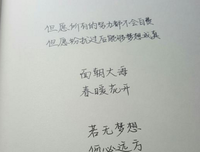 但愿所有的努力都不会白费
但愿吵过后能够梦想成真
面朝大海
春暖花开
若无梦想
何必远方